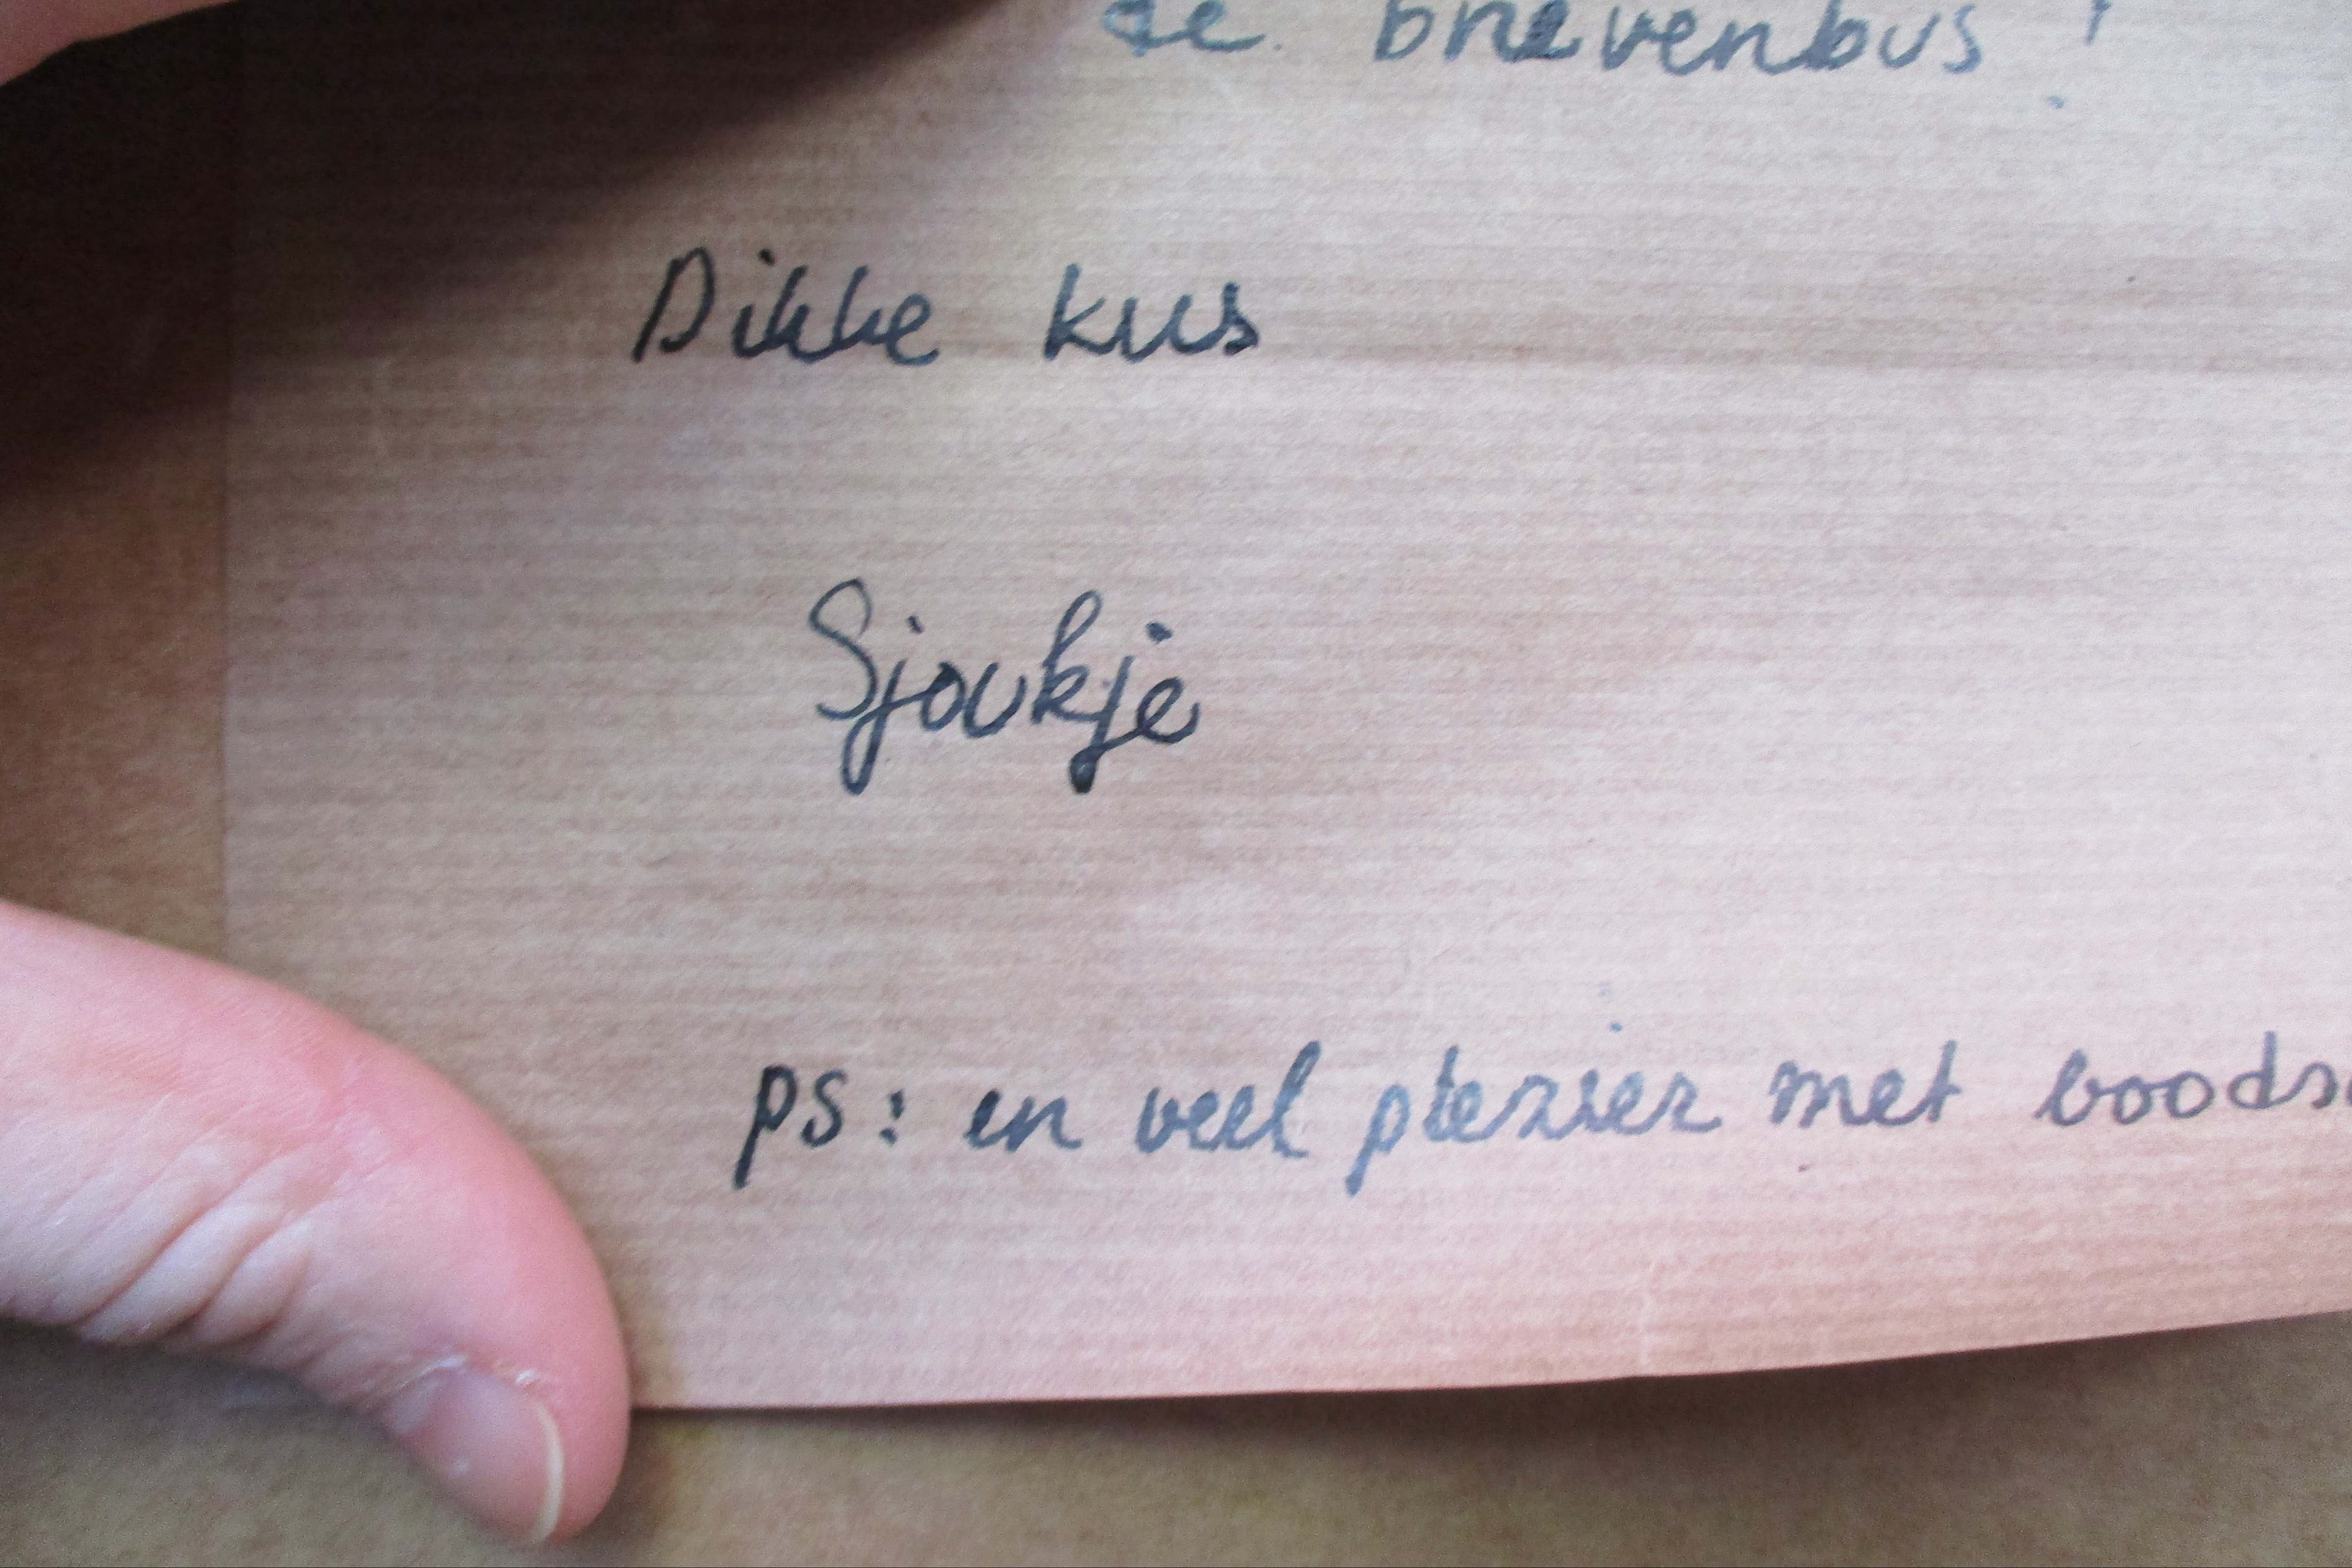 de brievenbus!
Dikke kus
Sjoukje
ps: en veel plezier met